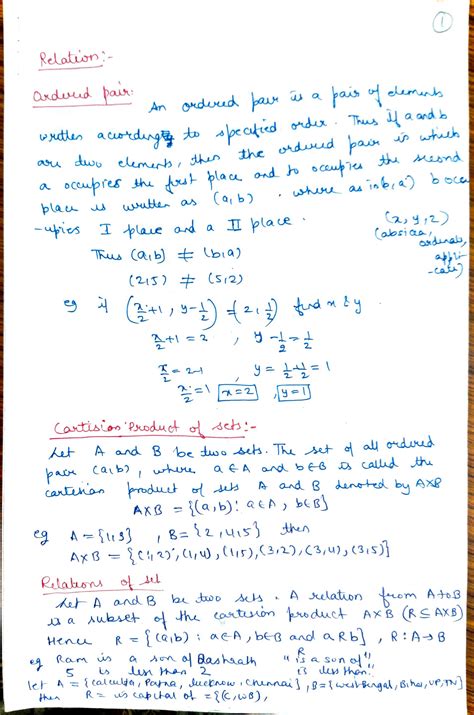 1
Relation:-
Ordered pair:
An ordered pair is a pair of elements
written according to specified order. Thus if a and b
are two elements, then the ordered pair in which
a occupies the first place and b occupies the second
place is written as (a,b) . where as in (b,a) b occu
-upies I place and a II place.
(x, y, z)
(absica,
ordinate,
appli
-cate)
Thus (a,b) ≠ (b,a)
(2,5) ≠ (5,2)
eg if (x/2+1, y-1/2) = (2, 1/2) find x & y
x/2+1 = 2 , y-1/2 = 1/2
x/2 = 2-1 y = 1/2+1/2 = 1
x/2 = 1 x=2 , y=1
Cartision Product of sets:-
Let A and B be two sets. The set of all ordered
pair (a,b), where a∈A and b∈B is called the
cartesian product of sets A and B denoted by AxB
AxB = {(a,b): a∈A, b∈B}
eg A = {1,3} , B = {2,4,5} then
AxB = {(1,2), (1,4), (1,5), (3,2), (3,4), (3,5)}
Relations of set
Let A and B be two sets. A relation from A to B
is a subset of the cartesion product AxB (R ⊆ AxB)
Hence R = {(a,b) : a∈A, b∈B and a R b} , R: A→B
eg Ram is a son of Dashrath R "is a son of"
5 is less than 2 is less than
let A = {calcutta, Patna, lucknow, chennai}, B = {west Bengal, Bihar, UP, TN}
then R = is capital of = {(C, WB),